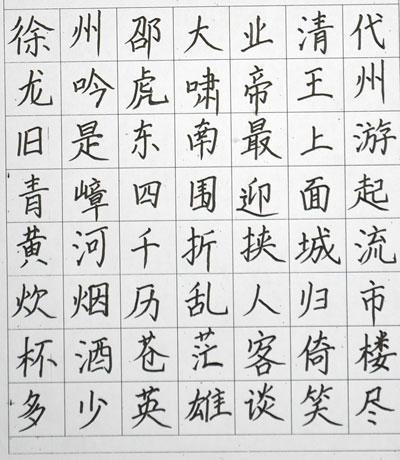 徐州邵大业清代
龙吟虎啸帝王州
旧是东南最上游
青嶂四围迎面起
黄河千折挟城流
炊烟历乱人归市
杯酒苍茫客倚楼
多少英雄谈笑尽